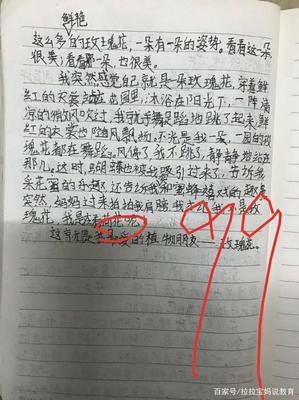 鲜艳
这么多的玫瑰花,一朵有一朵的姿势。看看这一朵,
很美;看看那一朵,也很美。
我突然感觉自己就是一朵玫瑰花,穿着鲜
红的衣裳站在花园里,沐浴在阳光下,一阵清
凉的微风吹过,我就手舞足蹈地跳了起来,鲜
红的衣裳也随风飘扬。不光是我一朵,一园的玫
瑰花都在舞蹈。风停了我不跳了,静静地站在
那儿。这时,蝴蝶也被我吸引过来了,告诉我
采花蜜的乐趣,还告诉我和蜜蜂嬉戏的趣事
突然,妈妈过来拍拍我肩膀,我才
我不是玫
瑰花,我是在看荷花呢
这就是我 爱的植物朋友——玫瑰花。
99
百家号/拉拉宝妈说教育